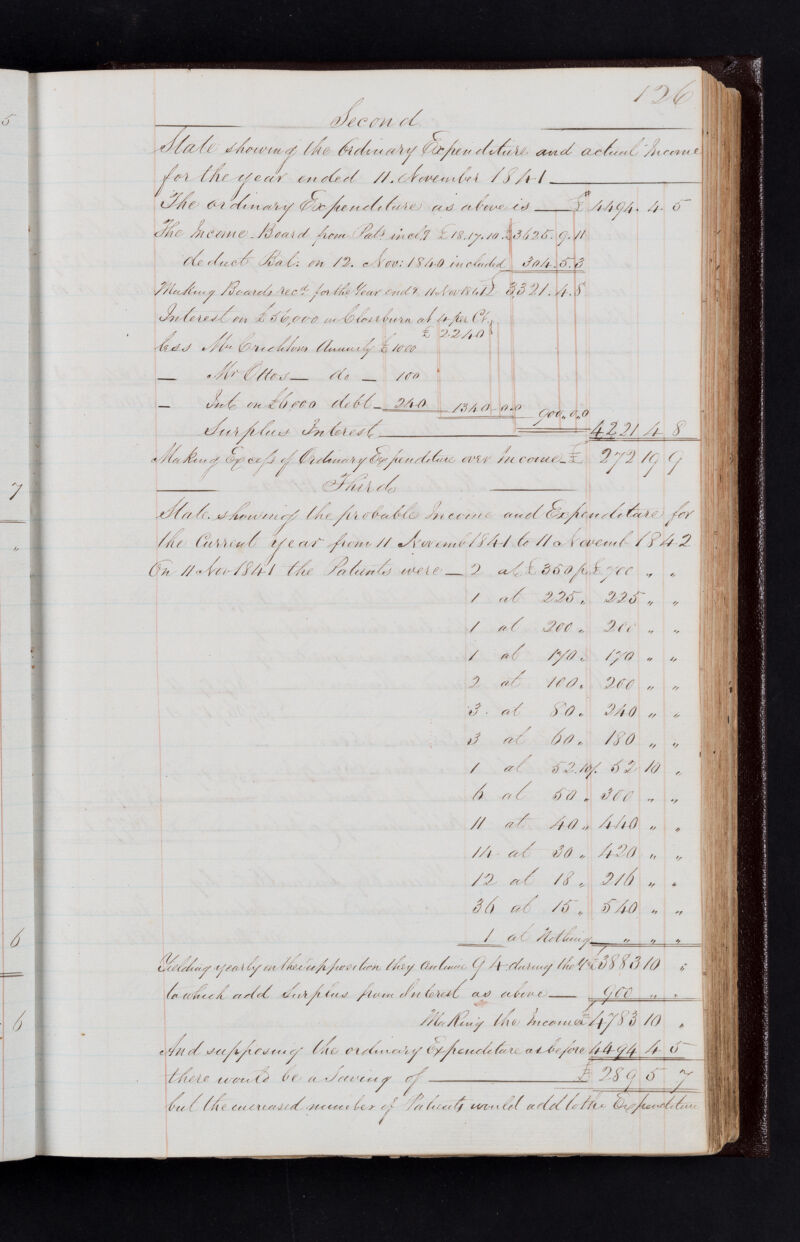 126
Second
State showing the Ordinary Expenditure and actual Income
for the year ended 11. November 1841
The ordinary Expenditure as above is £ 4494. 4. 5
The Income Board from Pats incl.g £18.17.10. £3625. 9. 11
deduct Bal: on 12. Nov: 1840 included 304. 5. 3
Making Boards recd. for the Year endg. 11. Nov 1841 £ 3321. 4. 8
Interest on £56,000 on Closeburn at 4 per Ct.
£ 2240
less Mrs Crichtons Annuity £ 1000
— Mr Ottos — do — 100
— Int. on £6000 debt — 240 1340. 0. 0 900. 0. 0
Surplus Interest 4221 4 8
Making Excess of Ordinary Expenditure over Income £ 272 19 9
Third
State showing the probable Income and Expenditure for
the Current year from 11 Novemb 1841 to 11 Novemb 1842
On 11 Nov 1841 the Patients were — 2 at £350 p £700 „ „
1 at 225 „ 225 „ „
1 at 200 „ 200 „ „
1 at 170 „ 170 „ „
2 at 100 „ 200 „ „
3 at 80 „ 240 „ „
3 at 60 „ 180 „ „
1 at 52.10/. 52 10 „
6 at 50 „ 300 „ „
11 at 40 „ 440 „ „
14 at 30 „ 420 „ „
12 at 18 „ 216 „ „
36 at 15 „ 540 „ „
1 at Nothing „ „ „
Yielding yearly on the supposition they continue 94 during the Yr £3883 10 „
to which add Surplus from Interest as above — 900 „ „
Making the Income £ 4783 10 „
And supposing the ordinary Expenditure as before 4494 4 5
there would be a Saving of £ 289 5 7
but the increased number of Patients would add to the Expenditure